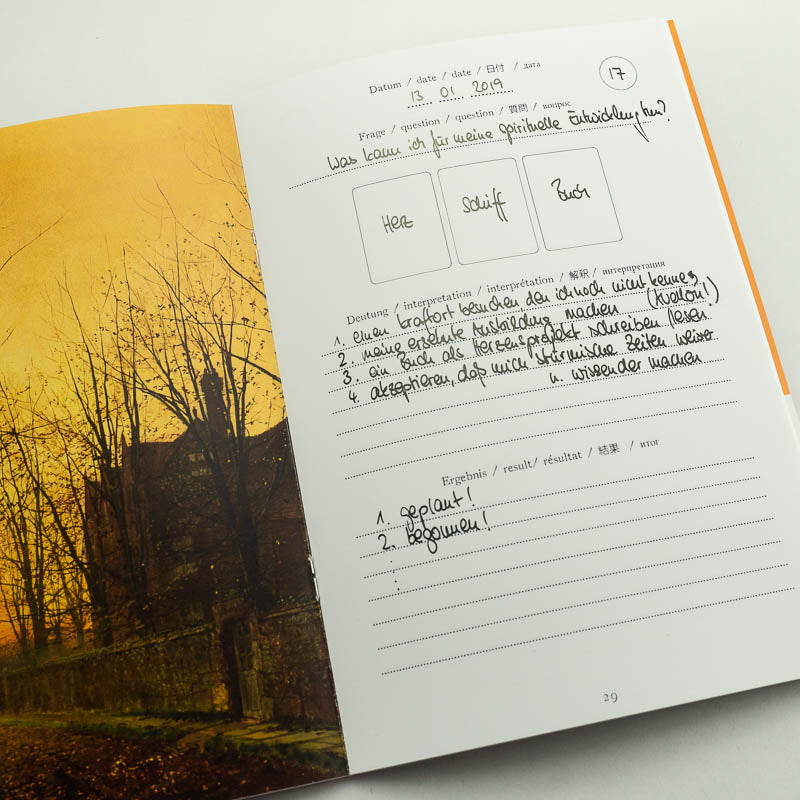 Datum / date / date / 日付 / дата
17
13 01 2019
Frage / question / question / 質問 / вопрос
Was kann ich für meine spirituelle Entwicklung tun?
Herz
Schiff
Buch
Deutung / interpretation / interprétation / 解釈 / интерпретация
1. einen Kraftort besuchen den ich noch nicht kenne
2. meine ersehnte Ausbildung machen
3. ein Buch als Herzensprojekt schreiben / lesen
4. akzeptieren, daß mich stürmische Zeiten weiser
u. wissender machen
Ergebnis / result / résultat / 結果 / итог
1. geplant!
2. begonnen!
:
:
29